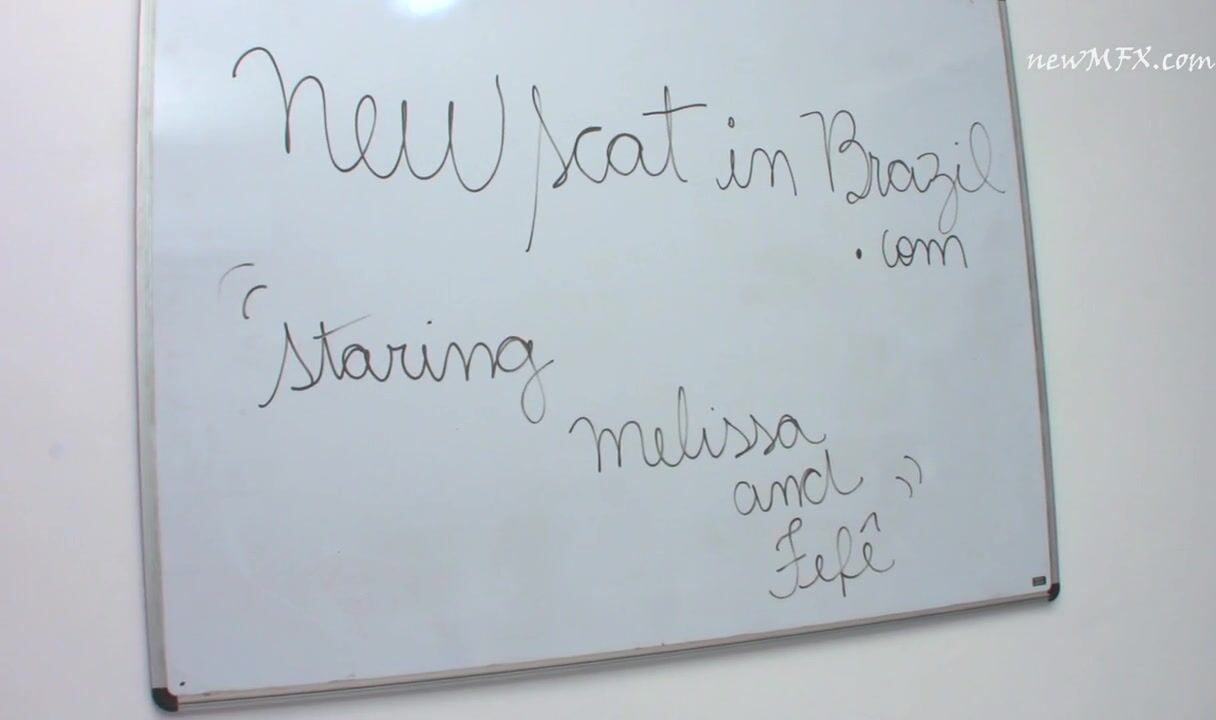 newMFX.com
New scat in Brazil
.com
"staring
melissa
and "
Fefê